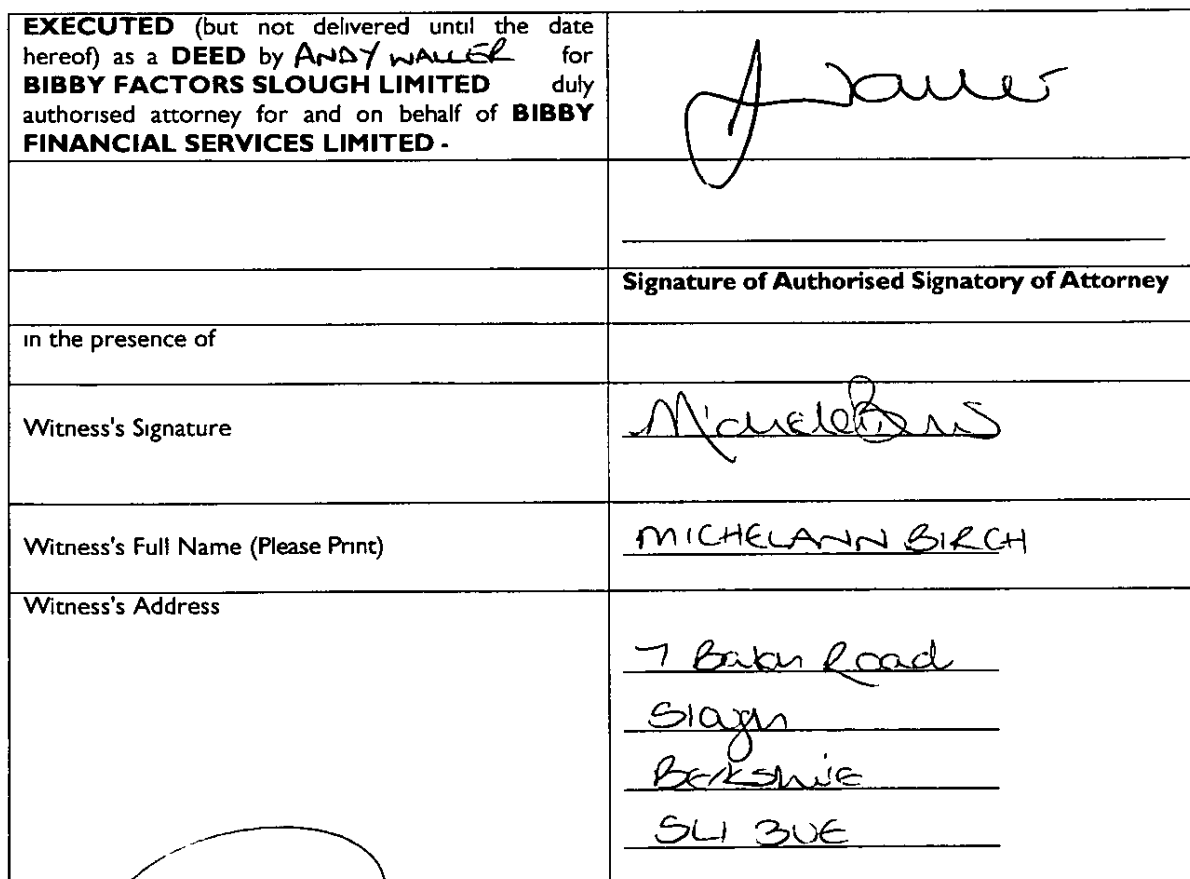 EXECUTED (but not delivered until the date
hereof) as a DEED by ANDY WALLER for
BIBBY FACTORS SLOUGH LIMITED duly
authorised attorney for and on behalf of BIBBY
FINANCIAL SERVICES LIMITED -
Signature of Authorised Signatory of Attorney
in the presence of
Witness's Signature
Witness's Full Name (Please Print)
MICHELANN BIRCH
Witness's Address
7 Road
Slough
BERKSHIRE
SL1 3UE